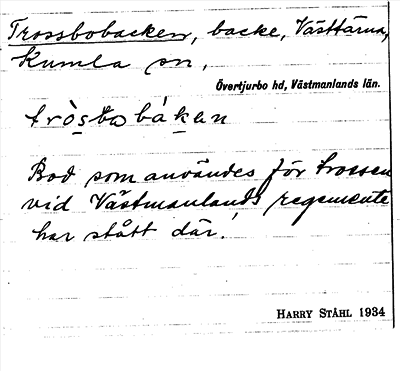 Trossbobacken, backe, Västtärna,
Kumla sn,
Övertjurbo hd, Västmanlands län.
tròsbobàkan
Bod som användes för trossen
vid Västmanlands regemente
har stått där.
HARRY STÅHL 1934